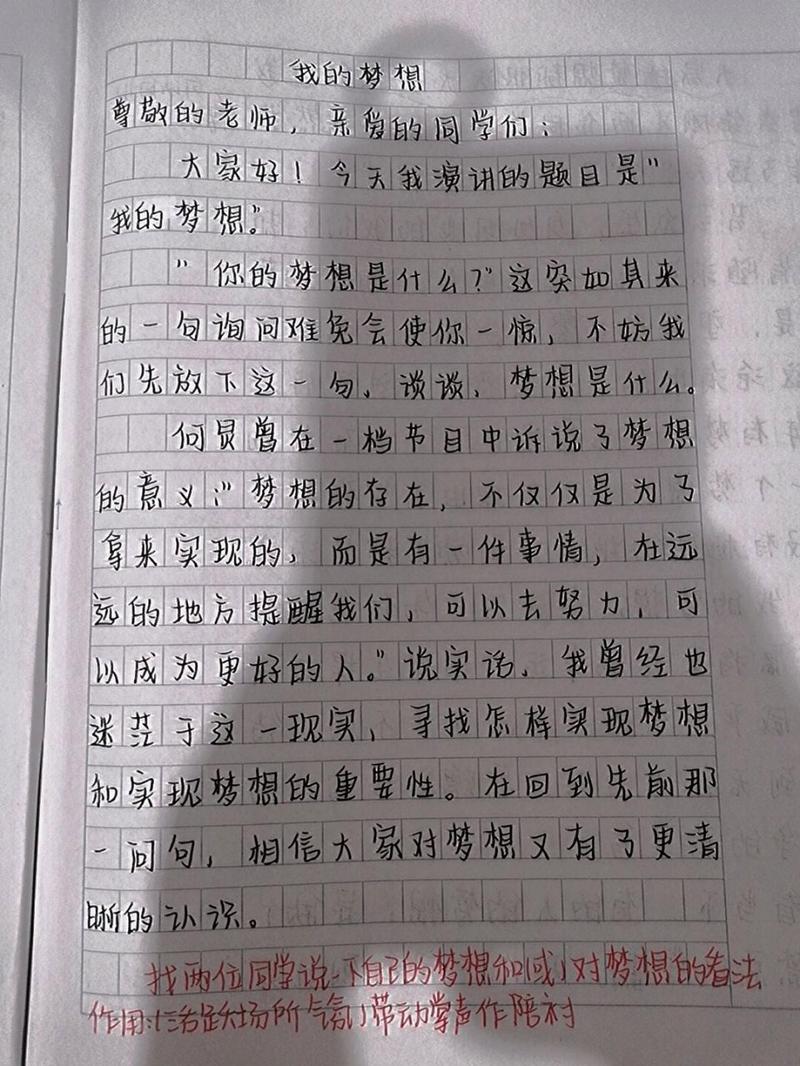 我的梦想
尊敬的老师，亲爱的同学们：
大家好！今天我演讲的题目是"
我的梦想。"
"你的梦想是什么？"这突如其来
的一句询问难免会使你一惊，不妨我
们先放下这一句，谈谈，梦想是什么。
何炅曾在一档节目中诉说了梦想
的意义："梦想的存在，不仅仅是为了
拿来实现的，而是有一件事情，在远
远的地方提醒我们，可以去努力，可
以成为更好的人。"说实话，我曾经也
迷茫于这一现实，寻找怎样实现梦想
和实现梦想的重要性。在回到先前那
一问句，相信大家对梦想又有了更清
晰的认识。
找两位同学说一下自己的梦想和(或)对梦想的看法
作用：(活跃场所气氛)带动掌声作陪衬